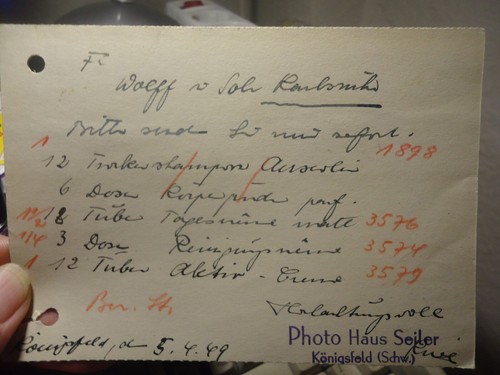 Fr.
Wolff & Sohn Karlsruhe
Bitte senden Sie mir sofort.
1 12 Trockenshampoon 1898
6 Dosen Körperpuder parf.
12 Tuben Tagescreme matt 3576
1/4 3 Dosen Reinigungscreme 3574
1 12 Tuben Aktiv-Creme 3579
Hochachtungsvoll
Photo Haus Seiler
Königsfeld (Schw.)
Königsfeld, d. 5.4.49